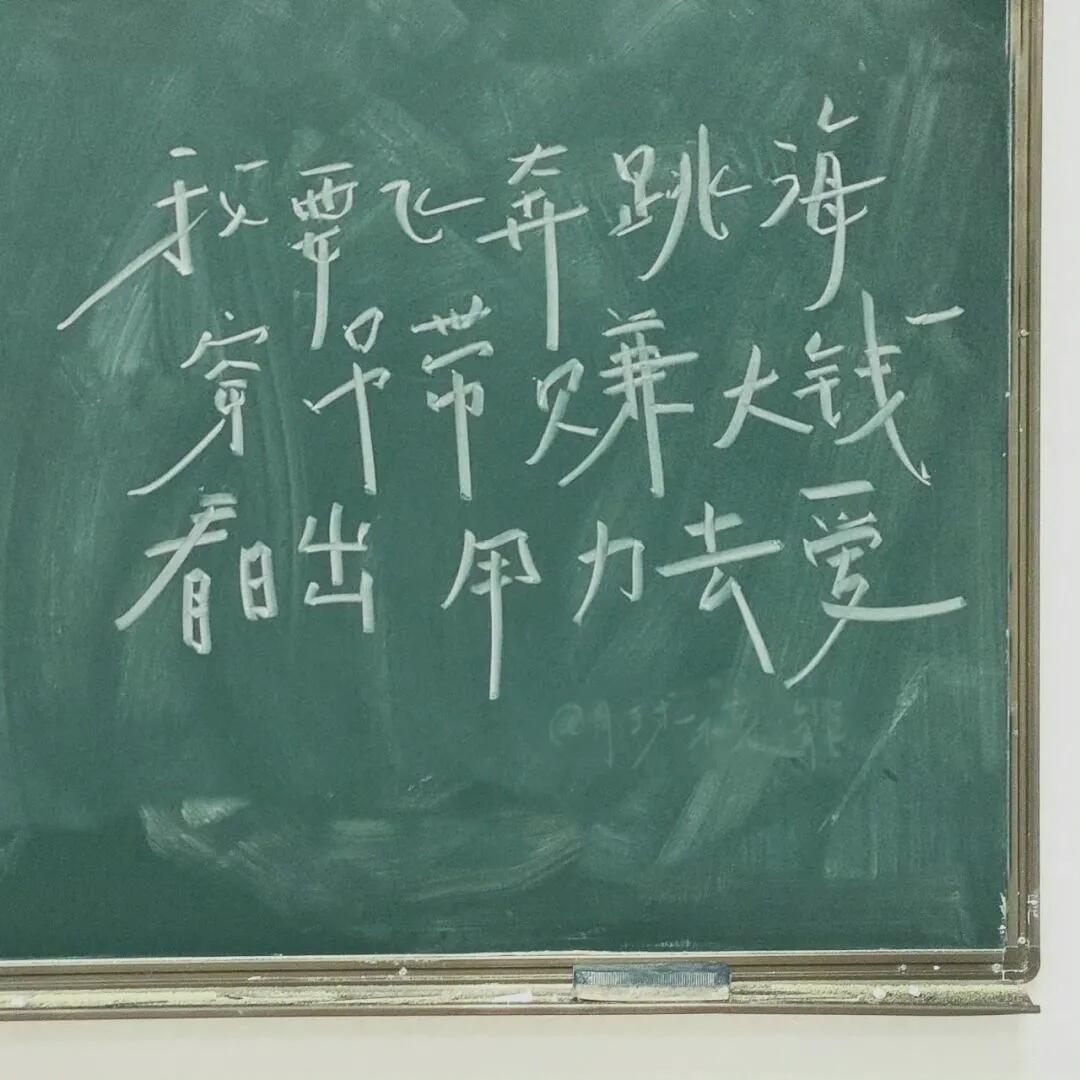 我要飞奔跳海
穿吊带赚大钱
看日出 用力去爱